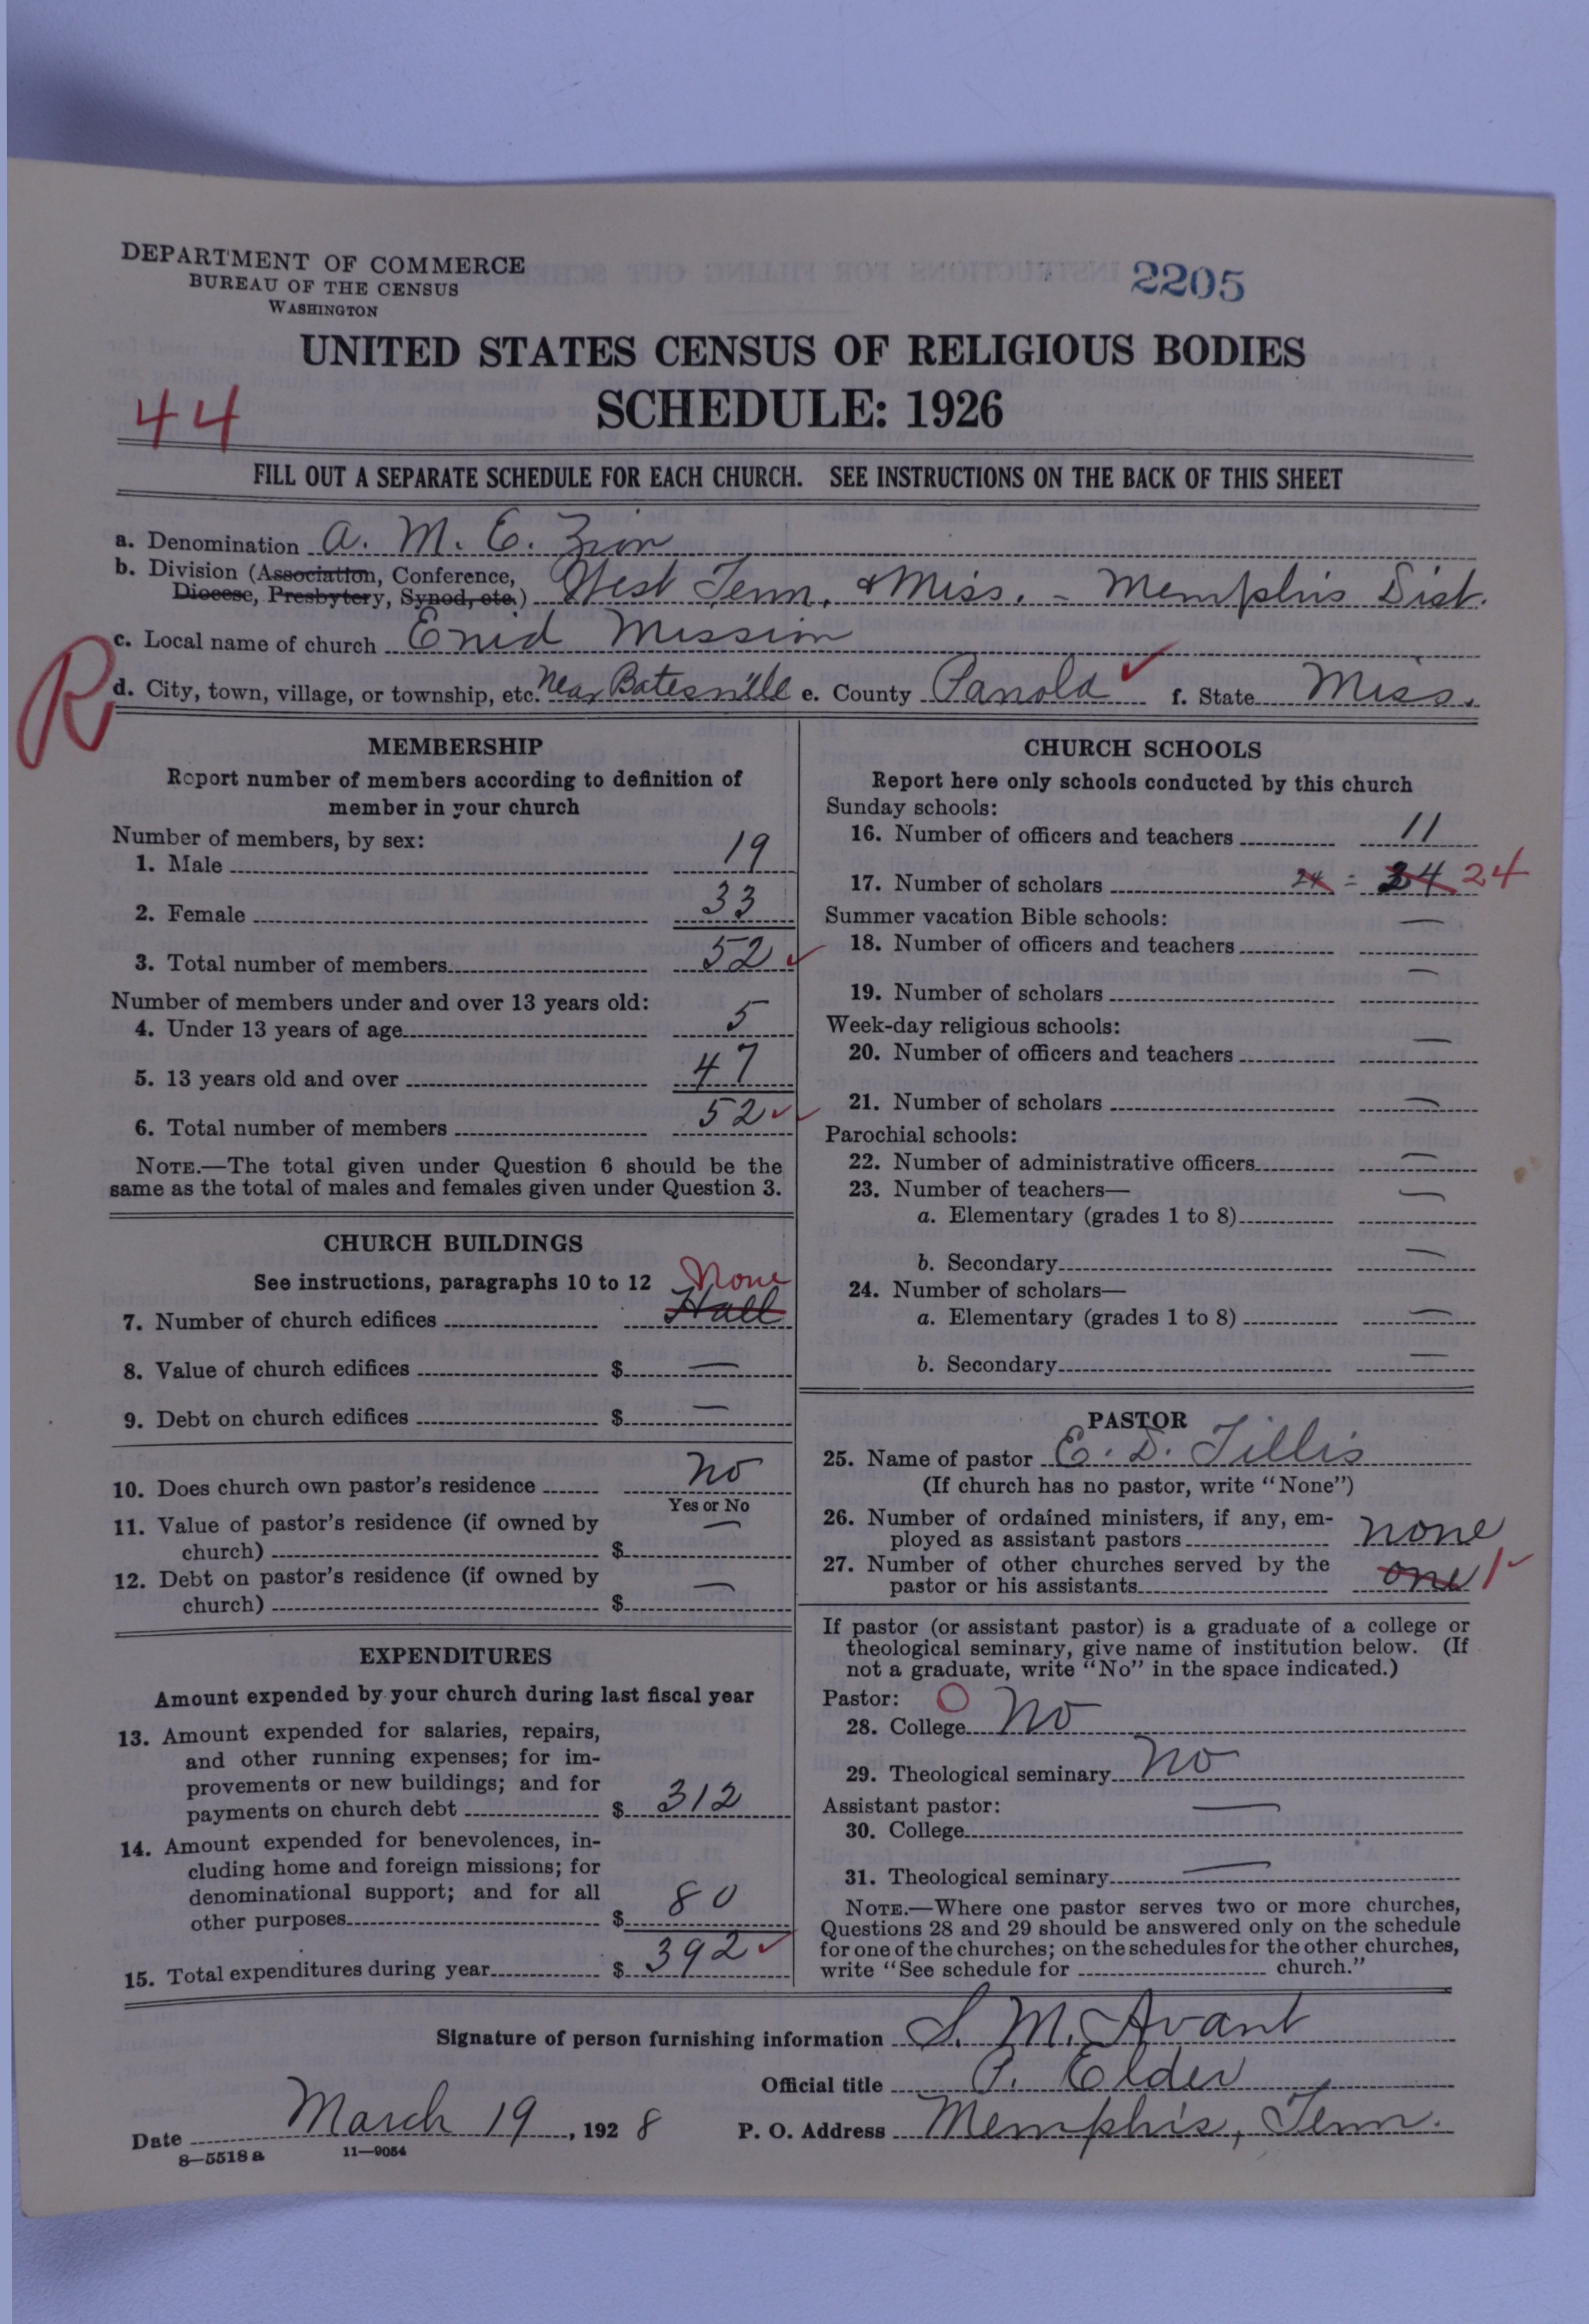 DEPARTMENT OF COMMERCE
BUREAU OF THE CENSUS
WASHINGTON
2205
UNITED STATES CENSUS OF RELIGIOUS BODIES
SCHEDULE: 1926
44
FILL OUT A SEPARATE SCHEDULE FOR EACH CHURCH. SEE INSTRUCTIONS ON THE BACK OF THIS SHEET
a. Denomination A. M. E. Zion
b. Division (Association, Conference, Diocese, Presbytery, Synod, etc.) West Tenn. & Miss. - Memphis Dist.
c. Local name of church Enid Mission
R
d. City, town, village, or township, etc. Near Batesville e. County Panola ✓ f. State Miss.
MEMBERSHIP
Report number of members according to definition of
member in your church
Number of members, by sex:
1. Male 19
2. Female 33
3. Total number of members 52 ✓
Number of members under and over 13 years old:
4. Under 13 years of age 5
5. 13 years old and over 47
6. Total number of members 52 ✓✓
NOTE.—The total given under Question 6 should be the
same as the total of males and females given under Question 3.
CHURCH BUILDINGS
See instructions, paragraphs 10 to 12 None
7. Number of church edifices Hall
8. Value of church edifices $ —
9. Debt on church edifices $ —
10. Does church own pastor's residence No
Yes or No
11. Value of pastor's residence (if owned by
church) $ —
12. Debt on pastor's residence (if owned by
church) $ —
EXPENDITURES
Amount expended by your church during last fiscal year
13. Amount expended for salaries, repairs,
and other running expenses; for im-
provements or new buildings; and for
payments on church debt $ 312
14. Amount expended for benevolences, in-
cluding home and foreign missions; for
denominational support; and for all
other purposes $ 80
15. Total expenditures during year $ 392 ✓
CHURCH SCHOOLS
Report here only schools conducted by this church
Sunday schools:
16. Number of officers and teachers 11
17. Number of scholars 24 = 34 24
Summer vacation Bible schools:
18. Number of officers and teachers —
19. Number of scholars —
Week-day religious schools:
20. Number of officers and teachers —
21. Number of scholars —
Parochial schools:
22. Number of administrative officers —
23. Number of teachers—
a. Elementary (grades 1 to 8) —
b. Secondary —
24. Number of scholars—
a. Elementary (grades 1 to 8) —
b. Secondary —
PASTOR
25. Name of pastor E. D. Tillis
(If church has no pastor, write "None")
26. Number of ordained ministers, if any, em-
ployed as assistant pastors none
27. Number of other churches served by the
pastor or his assistants one 1 ✓
If pastor (or assistant pastor) is a graduate of a college or
theological seminary, give name of institution below. (If
not a graduate, write "No" in the space indicated.)
Pastor: O
28. College No
29. Theological seminary No
Assistant pastor:
30. College —
31. Theological seminary —
NOTE.—Where one pastor serves two or more churches,
Questions 28 and 29 should be answered only on the schedule
for one of the churches; on the schedules for the other churches,
write "See schedule for church."
Signature of person furnishing information S. M. Avant
Official title P. Elder
Date March 19, 1928 P. O. Address Memphis, Tenn.
8—5518 a 11—9054